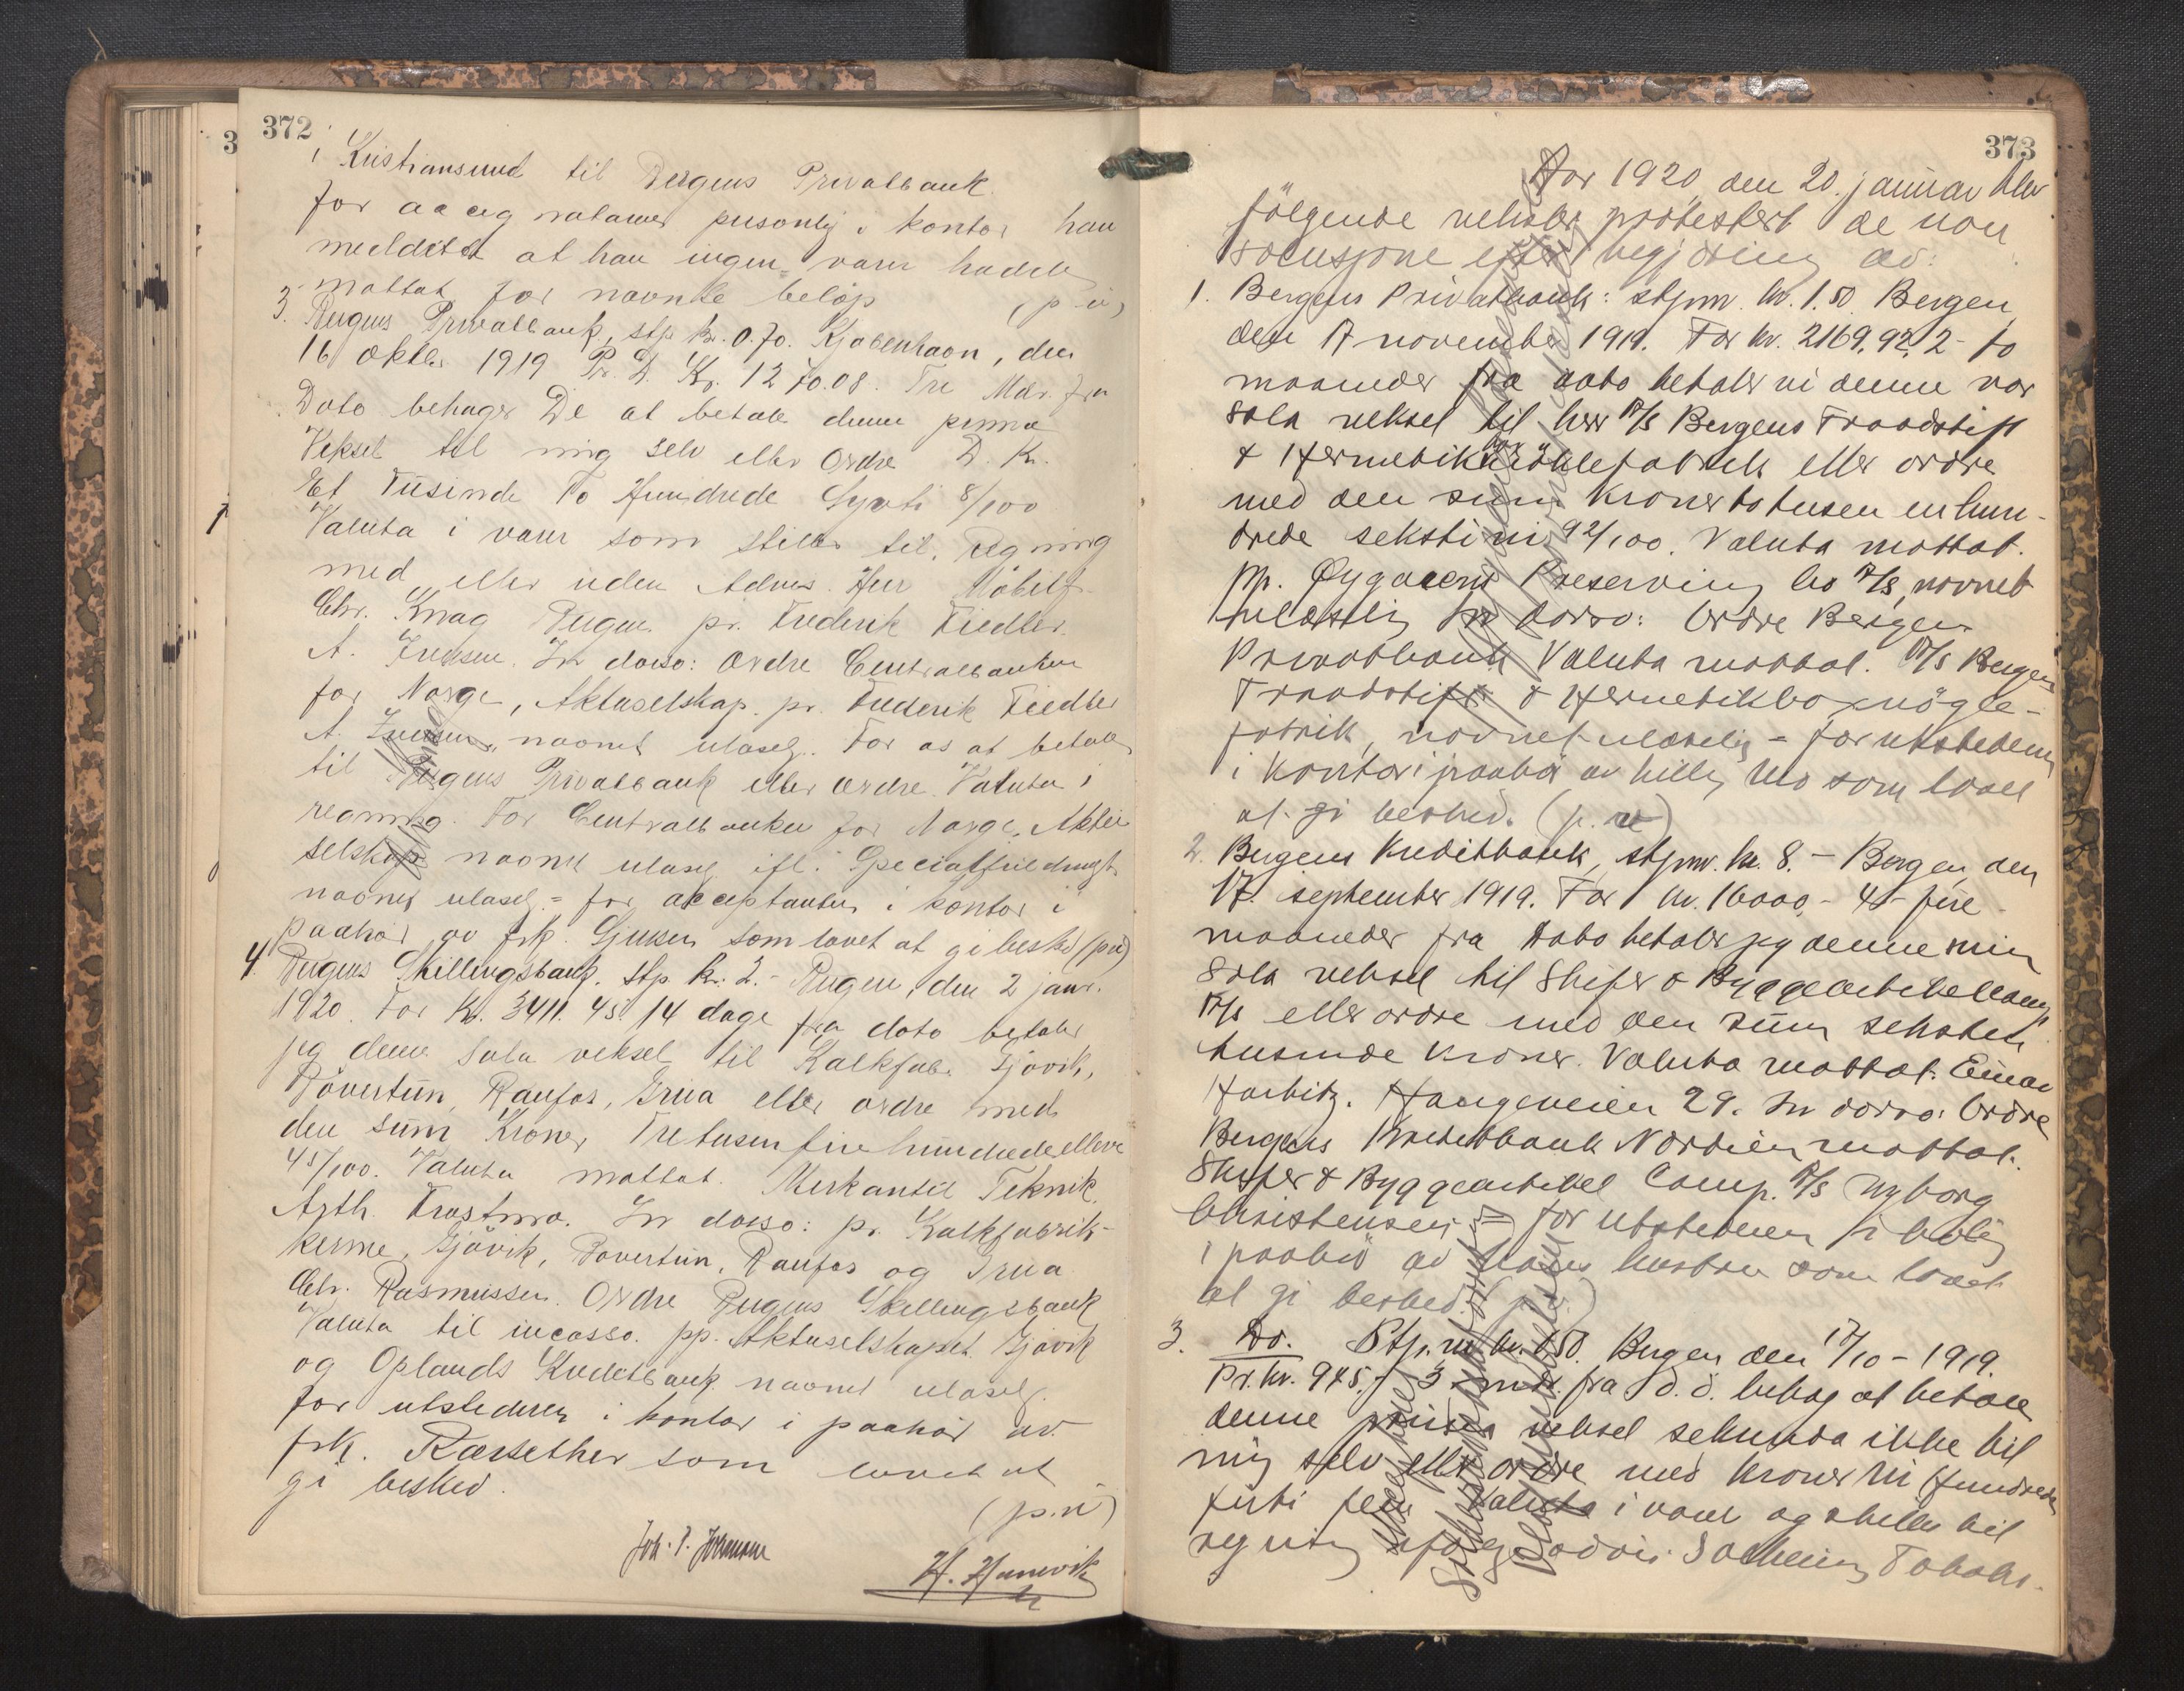 372
i Kristiansund til Bergens Privatbank.
for
personlig i kontor han
meddelte at han ingen varer hadde
mottat for nævnte beløp (p.ü)
3. Bergens Privatbank, stp. kr. 0.70. Kjøbenhavn, den
16 oktbr 1919 Pr. D. Kr. 1270.08. Tre Mdr. fra
Dato behager De at betale denne prima
Veksel til mig selv eller Ordre D. Kr.
Et Tusinde To Hundrede Sytti 8/100
Valuta i varer som stilles til Regning
med eller uden Advis. Herr Møbelf.
Chr. Krag Bergen pr. Frederik Fiedler
A. Iversen. In dorso: Ordre Centralbanken
for Norge, Aktieselskap. pr. Frederik Fiedler
A. Iversen, navnet ulæselig. For os at betale
til Bergens Privatbank eller ordre. Valuta i
regning. For Centralbanken for Norge, Aktie
selskap navnet ulæselig ifl. Specialfuldmagt
navnet ulæselig = for acceptanten i kontor i
paahør av frk. som lovet at gi besked (p.ü)
4. Bergens Skillingsbank. stp. kr. 2.- Bergen, den 2 janr.
1920. For Kr. 3411.45. 14 dage fra dato betaler
jeg denne Sola veksel til Kalkfabr. Gjøvik,
Røvertun, Raufos, Grua eller ordre med
den sum Kroner Tretusenfirehundredeelleve
45/100. Valuta mottat. Merkantil Teknik.
Arth. In dorso: pr. Kalkfabrik-
kerne, Gjøvik, Røvertun, Raufos og Grua
Chr. Rasmussen. Ordre Bergens Skillingsbank
Valuta til incasso. pp. Aktieselskapet Gjøvik
og Oplands Kreditbank navnet ulæselig.
for utstederen i kontor i paahør av
frk. Rørsether som lovet at
gi besked.
(p.ü)
Joh. P. Johansen
H. Hanevik
373
Aar 1920, den 20. januar blev
følgende veksler protestert de non
solusjone efter begjæring av:
1. Bergens Privatbank: stpm. kr. 1.50. Bergen,
den 17 november 1919. For kr. 2169.92. 2 - to
maaneder fra dato betaler vi denne vor
Sola veksel til herr A/S Bergens Traadstift
& Hermetik nøklefabrik eller ordre
med den sum Kroner totusen enhun-
drede sekstini 92/100. Valuta mottat.
pp. Øygarden Preserving Co A/S, navnet
ulæselig In dorso: Ordre Bergens
Privatbank Valuta mottat. A/S Bergens
Traadstift & Hermetikboxnøgle-
fabrik, navnet ulæselig = for utstederen
i kontor i paahør av Mo som lovet
at gi besked. (p. ü)
2. Bergens Kreditbank, stpm. kr. 8.- Bergen, den
17. september 1919. For kr. 16000.- 4 - fire
maaneder fra Dato betaler jeg denne min
Sola veksel til Skifer & Byggeartikel Comp
A/S eller ordre med den sum seksten
tusinde kroner. Valuta mottat: Einar
Harbitz. Haugeveien 29. In dorso: Ordre
Bergens Kreditbank Værdien mottat.
Skifer & Byggeartikel Comp. A/S Nyborg
Christensen = for utstederen i bolig
i paahør av hans hustru som lovet
at gi besked. (p.ü.)
3. Do. Stp.m. kr. 1.50. Bergen den 17/10 - 1919.
Pr. kr. 945.- 3 mdr. fra d. d. behag at betale
denne prima veksel sekunda ikke til
mig selv eller ordre med kroner Ni Hundrede
firti fem Valuta i varer og stilles til
regning ifølge advis. Solheim Tobaks-